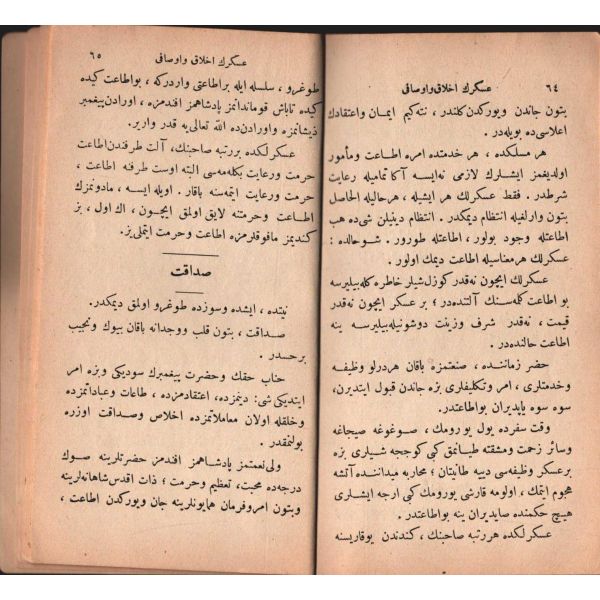 ٦٤
عسكرك اخلاق واوصافی
بتون جاندن ويوركدن كلندر ، نته كيم ايمان واعتقادك
اعلاسی ده بويله در .
هر مسلكده ، هر خدمتده امره اطاعت ومأمور
اولديغمز ايشلرك لازمی نه ايسه آكا تماميله رعايت
شرطدر . فقط عسكرلك هر ايشيله ، هر حاليله الحاصل
بتون وارلغيله انتظام ديمكدر . انتظام دينيلن شی ده هب
اطاعتله وجود بولور ، اطاعتله طورور . شو حالده :
عسكرلك هر معناسيله اطاعت ديمك اولور .
عسكرلك ايچون نه قدر كوزل شيلر خاطره كله بيليرسه
بو اطاعت كلمه سنك آلتنده در ؛ بر عسكر ايچون نه قدر
قيمت ، نه قدر شرف وزينت دوشونيله بيليرسه ينه
اطاعت حالنده در .
حضر زماننده ، صنعتمزه باقان هر درلو وظيفه
وخدمتلری ، امر وتكليفلری بزه جاندن قبول ايتديرن ،
سوه سوه ياپديران بو اطاعتدر .
وقت سفرده يول يورومك ، صوغوغه صيجاغه
وسائر زحمت ومشقته طيانمق كبی كوجمجه شيلری بزه
بر عسكر وظيفه سی دييه طانيتان ؛ محاربه ميداننده آتشه
هجوم ايتمك ، اولومه قارشی يورومك كبی ايشلری
هيچ حكمنده صايديران ينه بو اطاعتدر .
عسكرلكده هر رتبه صاحبنك ، كندندن يوقاريسنه
عسكرك اخلاق واوصافی
٦٥
طوغرو ، سلسله ايله بر اطاعتی واردركه ، بو اطاعت كيده
كيده تا باش قوماندانمز پادشاهمز افندمزه ، اورادن پيغمبر
ذيشانمزه واورادن ده الله تعالی يه قدر وارير .
عسكرلكده بر رتبه صاحبنك ، آلت طرفندن اطاعت
حرمت ورعايت بكله مه سی البته اوست طرفنه اطاعت ،
حرمت ورعايت ايتمه سنه باقار . اويله ايسه ، مادونمزك
اطاعت وحرمتنه لايق اولمق ايچون ، اك اول ، بز
كنديمز مافوقلرمزه اطاعت وحرمت ايتملی يز .
صداقت
نيتده ، ايشده وسوزده طوغرو اولمق ديمكدر .
صداقت ، بتون قلب ووجدانه باقان بيوك ونجيب
بر حسدر .
جناب حقك وحضرت پيغمبرك سوديكی وبزه امر
ايتديكی شی : دينمزده ، اعتقادمزده ، طاعات وعباداتمزده
وخلقله اولان معاملاتمزده اخلاص وصداقت اوزره
بولنمقدر .
ولی نعمتمز پادشاهمز افندمز حضرتلرينه صوك
درجه ده محبت، تعظيم وحرمت ؛ ذات اقدس شاهانه لرينه
وبتون امر وفرمان همايونلرينه جان ويوركدن اطاعت ،